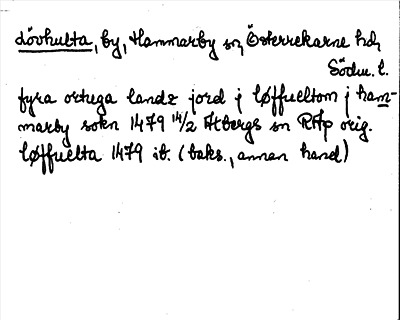 dövhulta, by, Hammarby sn, Österrekarne hd,
Södm. l.
fyra ortuga landz jord j løffueltom j ham-
marby sokn 1479 14/2 Åkbergs sn RAp orig.
løffuelta 1479 ib. (baks., annan hand)